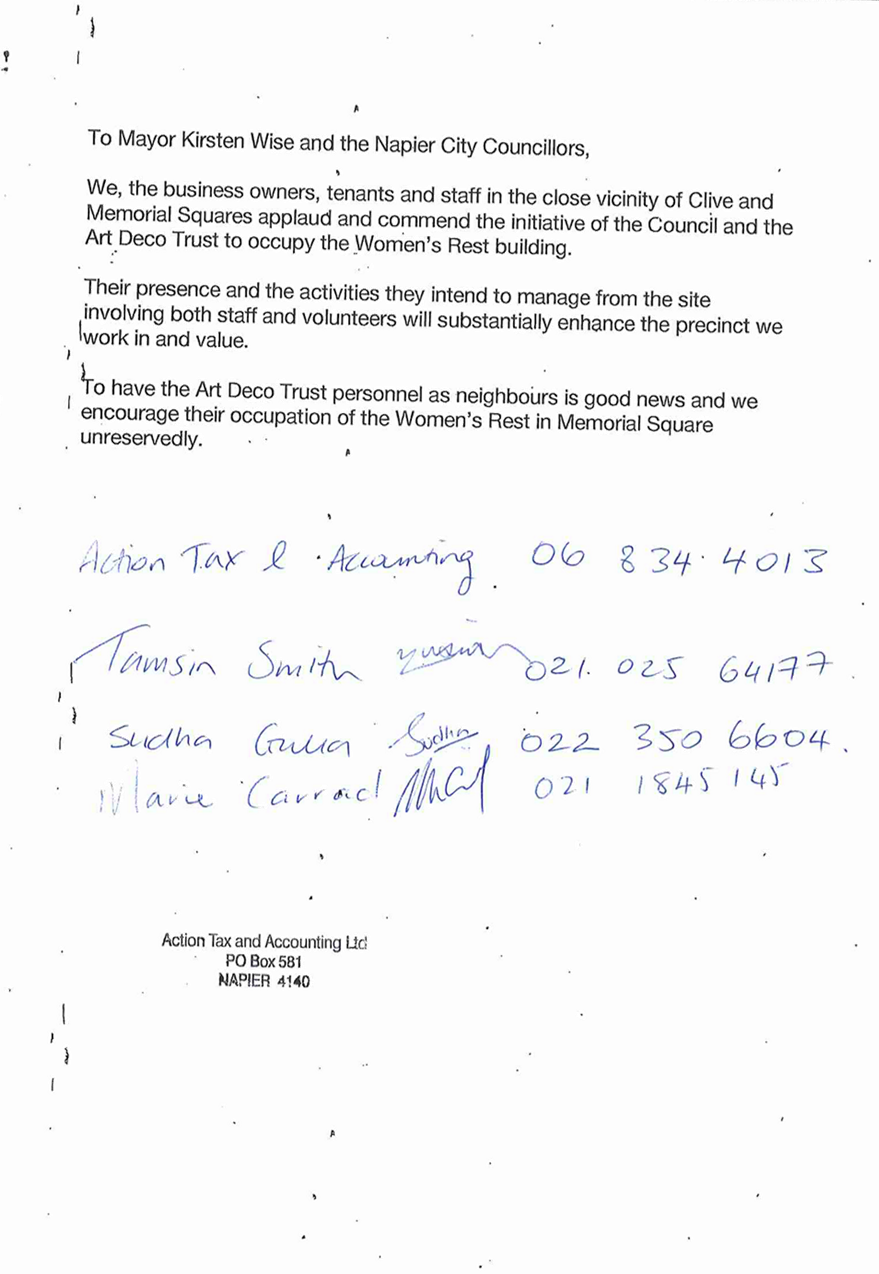 To Mayor Kirsten Wise and the Napier City Councillors,
We, the business owners, tenants and staff in the close vicinity of Clive and
Memorial Squares applaud and commend the initiative of the Council and the
Art Deco Trust to occupy the Women's Rest building.
Their presence and the activities they intend to manage from the site
involving both staff and volunteers will substantially enhance the precinct we
work in and value.
To have the Art Deco Trust personnel as neighbours is good news and we
encourage their occupation of the Women's Rest in Memorial Square
unreservedly.
Action Tax & Accounting 06 834 4013
Tamsin Smith 021. 025 64177
Sudha Gulia Sudha 022 350 6604.
Marie Carrad 021 1845 145
Action Tax and Accounting Ltd
PO Box 581
NAPIER 4140